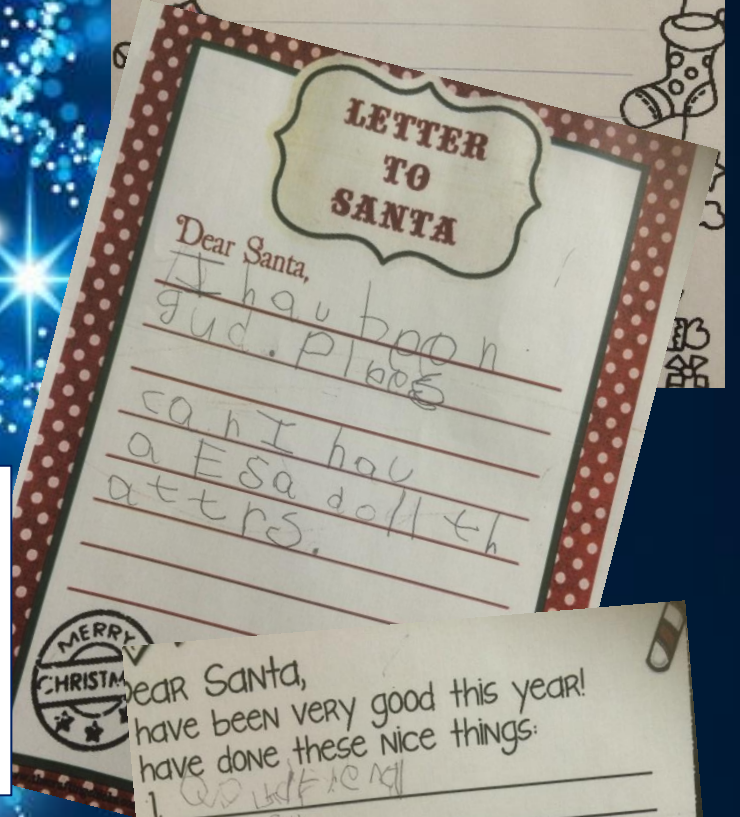 LETTER
TO
SANTA
Dear Santa,
I hav boon
gud. ploos
can I hav
a Esa doll th
attrs.
MERRY
CHRISTM
ear Santa,
have been very good this year!
have done these nice things:
1